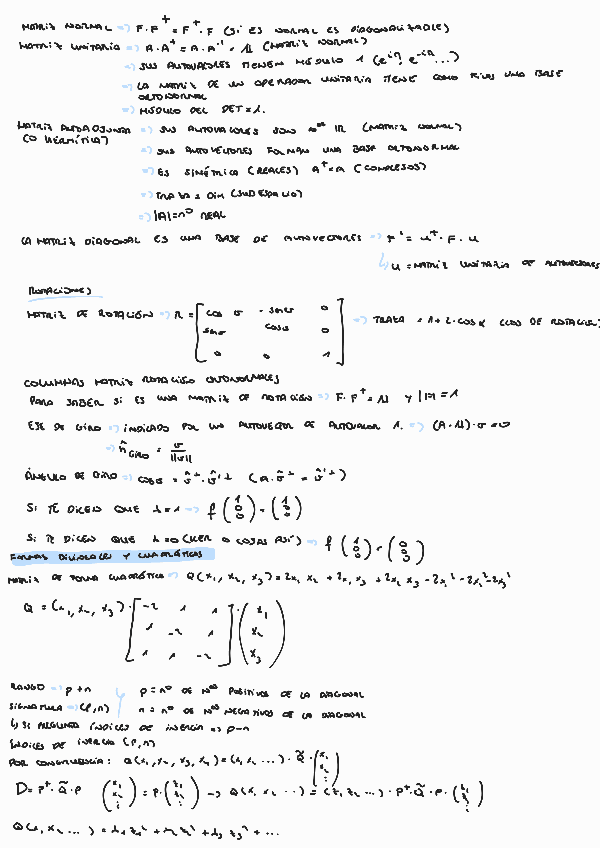 MATRIZ NORMAL => F·F⁺ = F⁺·F (SI ES NORMAL ES DIAGONALIZABLE)
MATRIZ UNITARIA => A·A⁺ = A·A⁻¹ = 1L (MATRIZ NORMAL)
=> SUS AUTOVALORES TIENEN MÓDULO 1 (e^iη, e^-iη ...)
=> LA MATRIZ DE UN OPERADOR UNITARIA TIENE COMO FILAS UNA BASE
ORTONORMAL
=> MÓDULO DEL DET = 1.
MATRIZ AUTOADJUNTA => SUS AUTOVALORES SON nᵒˢ IR (MATRIZ NORMAL)
(O HERMÍTICA) => SUS AUTOVECTORES FORMAN UNA BASE ORTONORMAL
=> ES SIMÉTRICA (REALES) A⁺=A (COMPLEJOS)
=> TRAZA = DIM (SUBESPACIO)
=> |A| = nº REAL
LA MATRIZ DIAGONAL ES UNA BASE DE AUTOVECTORES => F' = U⁺·F·U
↳ U = MATRIZ UNITARIA DE AUTOVECTORES
ROTACIONES
MATRIZ DE ROTACIÓN => R = [cos σ -senσ 0
senσ cosσ 0
0 0 1] => TRAZA = 1+2·COS α (COS DE ROTACIÓN)
COLUMNAS MATRIZ ROTACIÓN ORTONORMALES
PARA SABER SI ES UNA MATRIZ DE ROTACIÓN => F·F⁺ = 1L Y |F| = 1
EJE DE GIRO => INDICADO POR UN AUTOVECTOR DE AUTOVALOR 1. => (A-1L)·v = 0
=> n̂ GIRO = v/||v||
ÁNGULO DE GIRO => cosσ = v̂⊥·v̂'⊥ (A·v̂⊥ = v̂'⊥)
SI TE DICEN QUE λ=1 => f(1 0 0) = (1 0 0)
SI TE DICEN QUE λ=0 (KER O COSAS ASÍ) => f(1 0 0) = (0 0 0)
FORMAS BILINEALES Y CUADRÁTICAS
MATRIZ DE FORMA CUADRÁTICA => Q(x₁, x₂, x₃) = 2x₁x₂ + 2x₁x₃ + 2x₂x₃ - 2x₁² - 2x₂² - 2x₃²
Q = (x₁, x₂, x₃)·[-2 1 1
1 -2 1
1 1 -2]·(x₁ x₂ x₃)
RANGO => p+n p = nº DE Nᵒˢ POSITIVOS DE LA DIAGONAL
SIGNATURA => (p,n) n = nº DE Nᵒˢ NEGATIVOS DE LA DIAGONAL
↳ SI PREGUNTA ÍNDICES DE INERCIA => p-n
ÍNDICES DE INERCIA (p,n)
POR CONGRUENCIA: Q(x₁, x₂, x₃, x₄) = (x₁ x₂ ...)·Q̃·(x₁ x₂ ⋮)
D = P⁺·Q̃·P (x₁ x₂ ⋮) = P·(z₁ z₂ ⋮) -> Q(x₁ x₂ ...) = (z₁ z₂ ...)·P⁺·Q̃·P·(z₁ z₂ ⋮)
Q(x₁ x₂ ...) = λ₁z₁² + λ₂z₂² + λ₃z₃² + ...